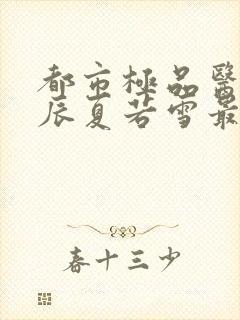 都市極品醫
辰夏若雪最
春十三少